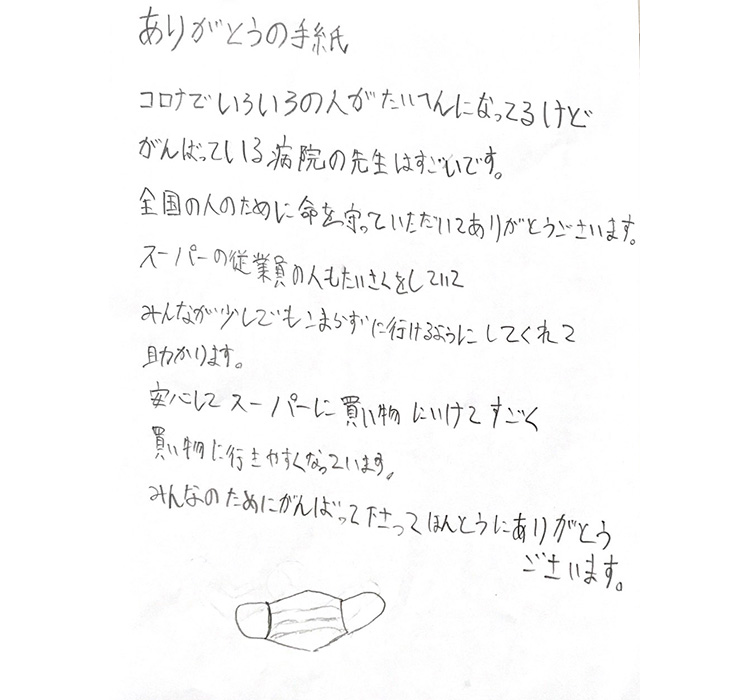 ありがとうの手紙
コロナでいろいろの人がたいへんになってるけど
がんばっている病院の先生はすごいです。
全国の人のために命を守っていただいてありがとうございます。
スーパーの従業員の人もたいさくをしていて
みんなが少しでもこまらずに行けるようにしてくれて
助かります。
安心してスーパーに買い物にいけてすごく
買い物に行きやすくなっています。
みんなのためにがんばって下さってほんとうにありがとう
ございます。